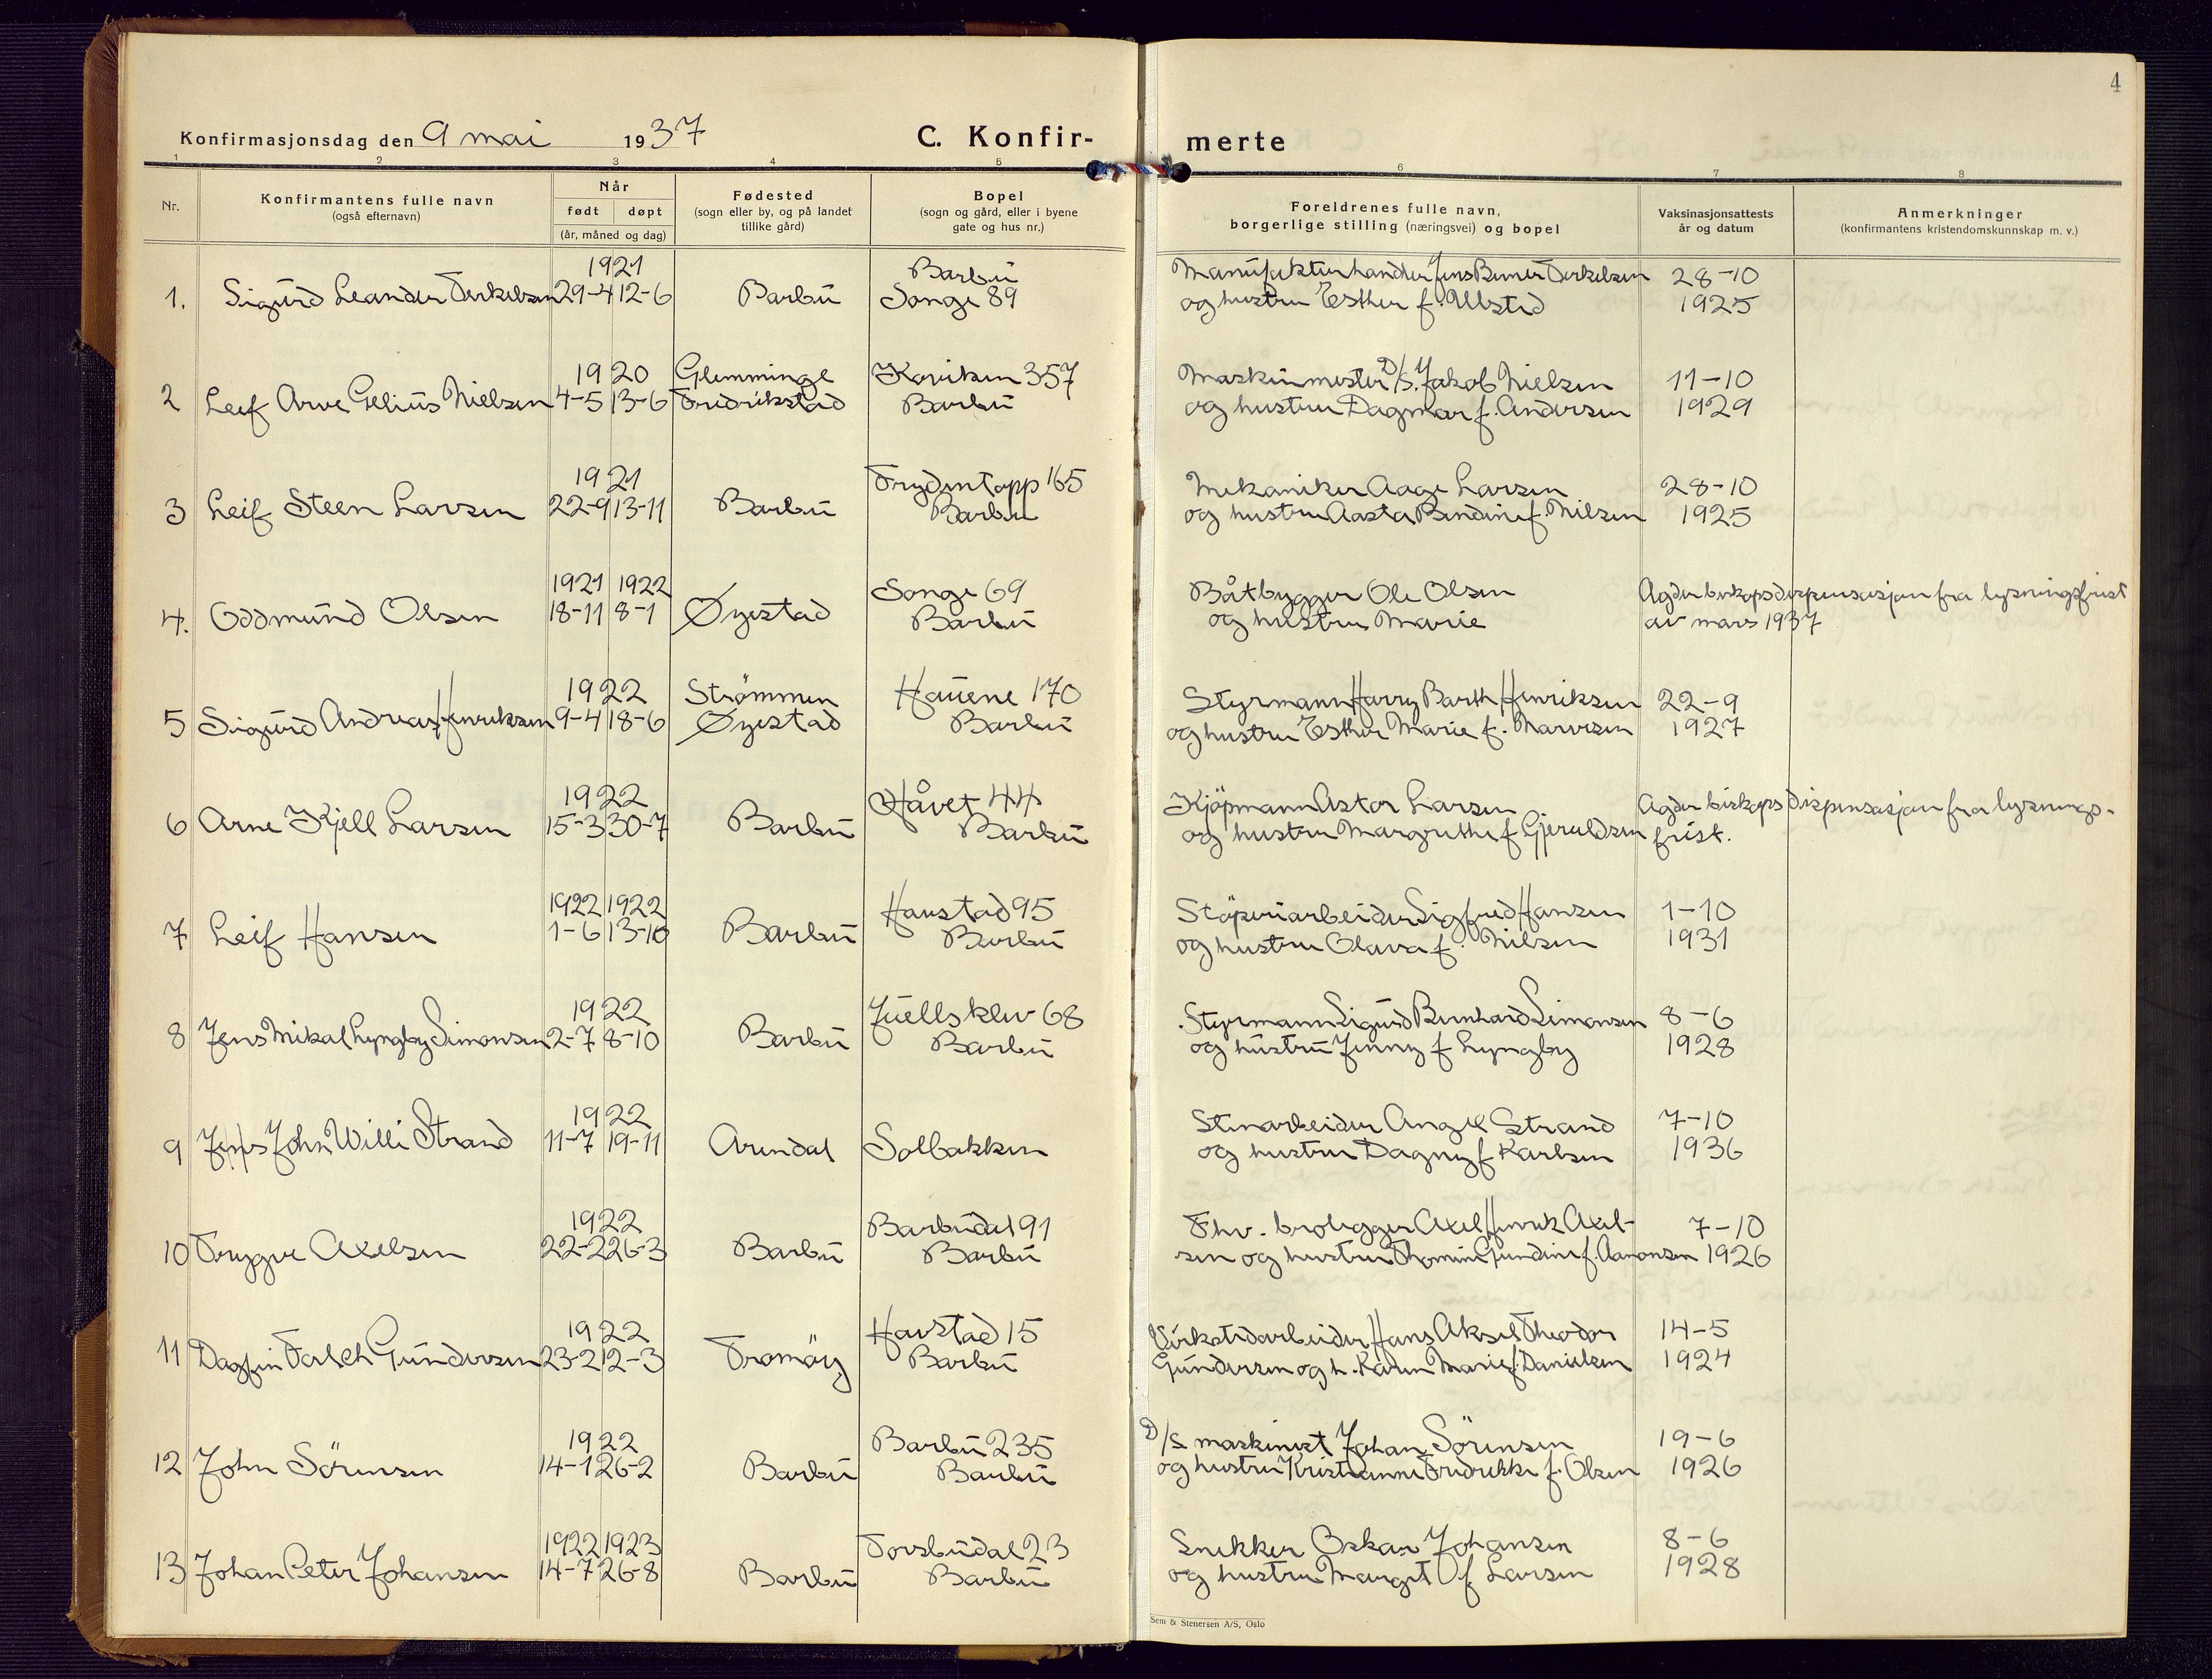 4
Konfirmasjonsdag den 9 mai 1937
C. Konfir- merte
1 2 3 4 5 6 7 8
Nr.
Konfirmantens fulle navn
(også efternavn)
Når
født døpt
(år, måned og dag)
Fødested
(sogn eller by, og på landet
tillike gård)
Bopel
(sogn og gård, eller i byene
gate og hus nr.)
Foreldrenes fulle navn,
borgerlige stilling (næringsvei) og bopel
Vaksinasjonsattests
år og datum
Anmerkninger
(konfirmantens kristendomskunnskap m. v.)
1921 Barbu Manufakturhandler Jens Berner Terkelsen 28-10
1. Sigurd Leander Terkelsen 29-4 12-6 Barbu Songe 89 og hustru Esther f. Ulstid 1925
1920 Glemminge Koviken 357 Maskinmester D/S. Jakob Nielsen 11-10
2 Leif Arve Gelius Nielsen 4-5 13-6 Fredrikstad Barbu og hustru Dagmar f. Andersen 1929
1921 Frydentopp 165 Mekaniker Aage Larsen 28-10
3 Leif Steen Larsen 22-9 13-11 Barbu Barbu og hustru Aasta Bendine f. Nilsen 1925
1921 1922 Songe 69 Båtbygger Ole Olsen Agder biskops dispensasjon fra lysningsfrist
4. Oddmund Olsen 18-11 8-1 Øyestad Barbu og hustru Marie av mars 1937
1922 Strömmen Hauene 170 Styrmann Harry Barth Henriksen 22-9
5 Sigurd Andreas Henriksen 9-4 18-6 Øyestad Barbu og hustru Esther Marie f. 1927
1922 Håvet 44 Kjöpmann Astor Larsen Agder biskops dispensasjon fra lysnings-
6 Arne Kjell Larsen 15-3 30-7 Barbu Barbu og hustru Margrethe f Gjeruldsen frist.
1922 1922 Harstad 95 Stöperiarbeider Sigfred Hansen 1-10
7 Leif Hansen 1-6 13-10 Barbu Barbu og hustru Olava f. Nilsen 1931
1922 Juellsklev 68 Styrmann Sigurd Bernhard Simonsen 8-6
8 Jens Mikal Lyngby Simonsen 2-7 8-10 Barbu Barbu og hustru Jenny f Lyngby 1928
1922 Stenarbeider Angel Strand 7-10
9 Jens John Willi Strand 11-7 19-11 Arendal Solbakken og hustru Dagny f Karlsen 1936
1922 Barbudal 91 Fhv. brolegger Axel Henrik Axel- 7-10
10 Trygve Axelsen 22-2 26-3 Barbu Barbu sen og hustru Thomine Gundine f. Aanonsen 1926
1922 Harstad 15 Verkstedarbeider Hans Aksel Theodor 14-5
11 Dagfin Falch Gundersen 23-2 12-3 Tromöy Barbu Gundersen og h. Karen Marie f. Danielsen 1924
1922 Barbu 235 D/S maskinist Johan Sörensen 19-6
12 John Sörensen 14-1 26-2 Barbu Barbu og hustru Kristianne Fredrikke f. Olsen 1926
1922 1923 Torsbudal 23 Snekker Oskar Johansen 8-6
13 Johan Peter Johansen 14-7 26-8 Barbu Barbu og hustru Margit O f Larsen 1928
Sem & Stenersen A/S, Oslo